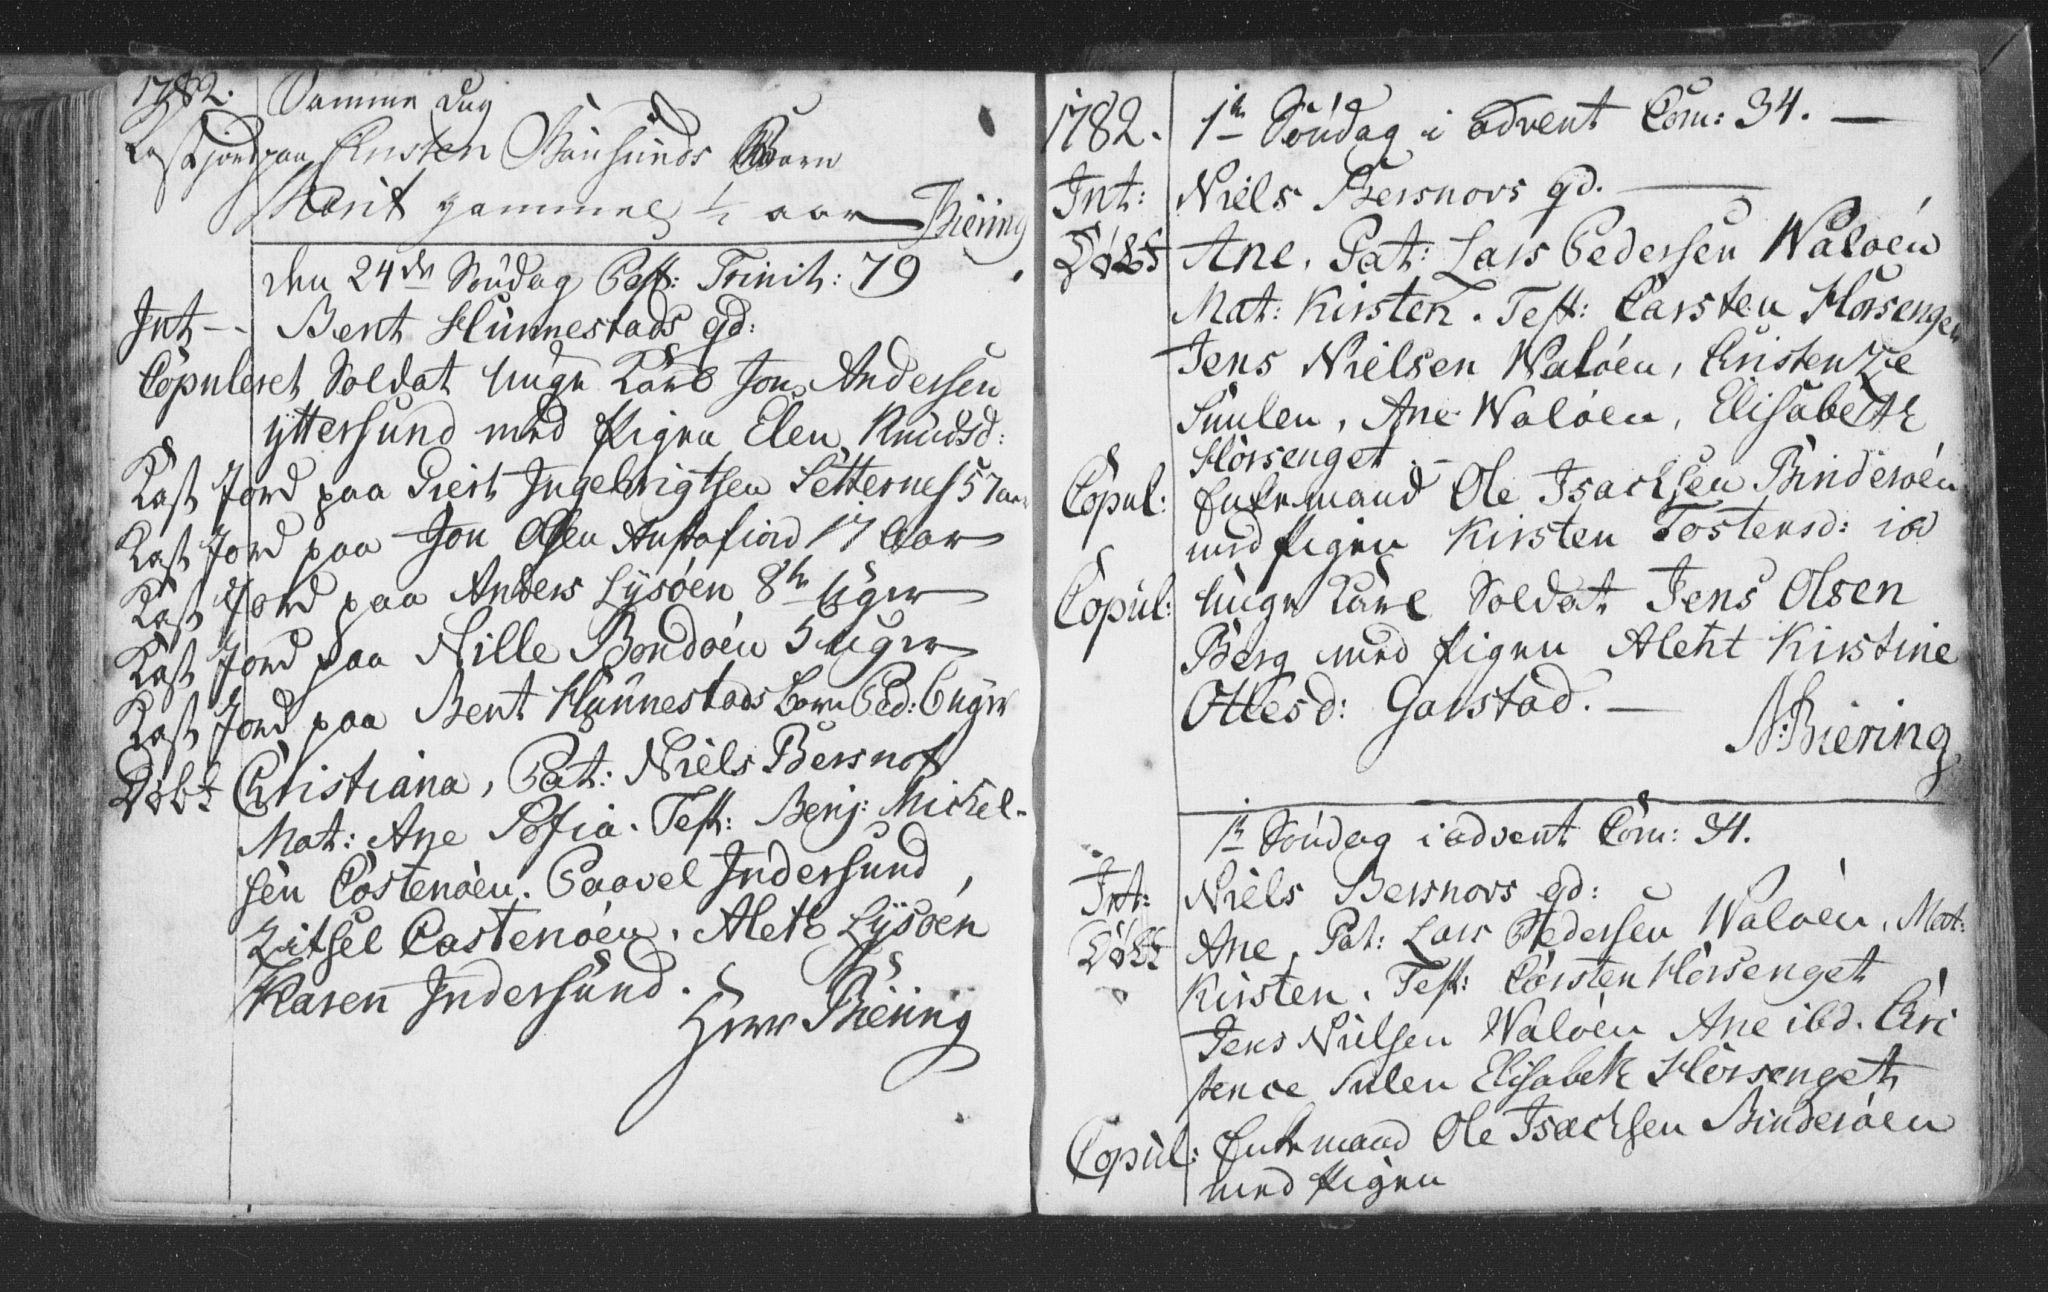 1782. Samme Dag
Kast jord paa Cristen Stausunds Barn
Marit gammel 1/2 aar Biering
den 24de Søndag Post: Trinit: 79
Int: Bent Hunnestads qd:
Copuleret Soldat unge Karl Jon Andersen
yttersund med Pigen Elen Knudsd:
Kast Jord paa Siert Ingebrigtsen Setternes 57 aar
Kast Jord paa Jon Olsen Austafiord 17 Aar
Kast Jord paa Anders Lysøen 8te Uger
Kast Jord paa Nille Bondøen 5 uger
Kast Jord paa Bent Hunnestads barn Ped: 6 uger
Døbt Christiana, Pat: Niels Bersnof
Mat: Ane Sofia. Test: Benj: Mickel-
sen Costenøen. Paavel Indersund,
Zitsel Castenøen, Alet Lysøen
Karen Indersund.
Herr Biering
1782. 1te Søndag i advent Com: 34. —
Int: Niels Bersnovs qd. —
Døbt Ane, Pat: Lars Pedersen Waløen
Mat: Kirsten. Test: Carsten Horsenget
Jens Nielsen Waløen, Cristenze
Suulen, Ane Waløen, Elisabeth
Horsenget. —
Copul: Enkemand Ole Isachsen Binderøen
med Pigen Kirsten Tostensd: ibd
Copul: Unge Karl Soldat Jens Olsen
Berg med Pigen Aleht Kirstine
Ottesd: Garstad. —
N: Biering
1te Søndag i advent Com: 34.
Int: Niels Bersnovs qd:
Døbt Ane, Pat: Lars Pedersen Waløen, Mat:
Kirsten, Test: Carsten Horsenget
Jens Nielsen Waløen Ane ibd. Cri
stence Sulen Elisabeth Horsenget
Copul: Enkemand Ole Isachsen Binderøen
med Pigen